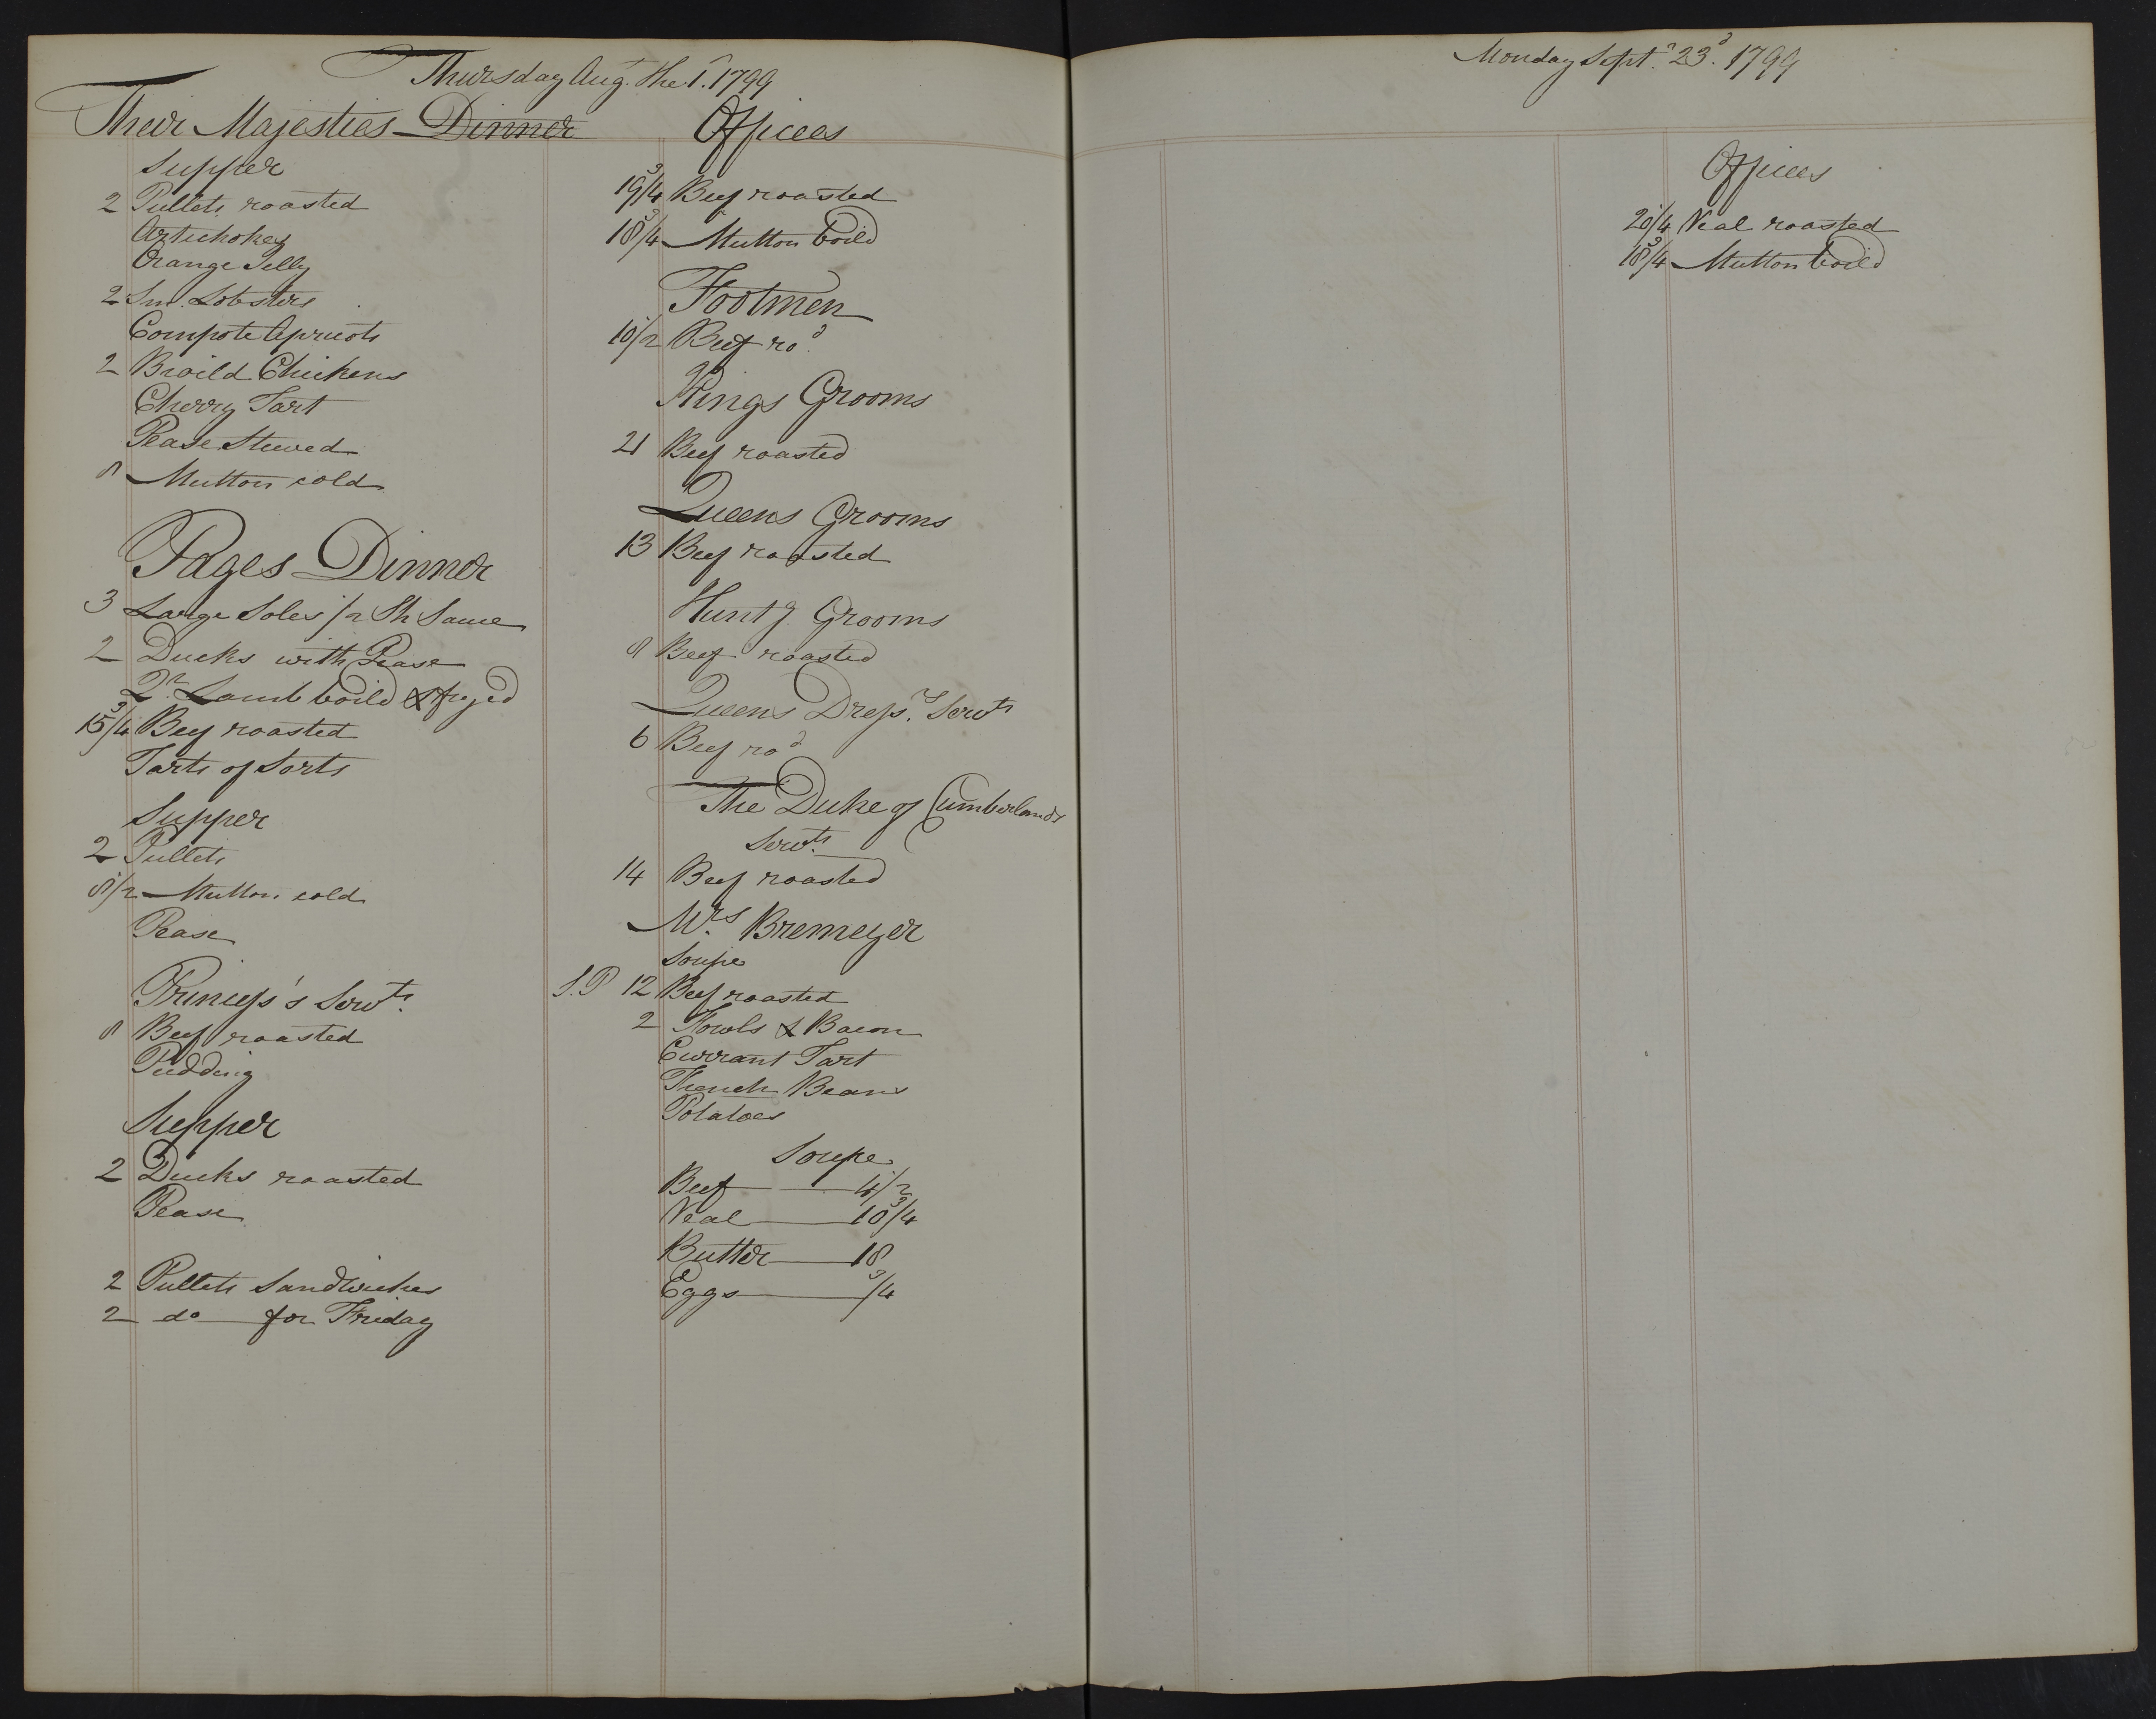 Thursday Augt. the 1st. 1799
Their Majesties Dinner
Supper
2 Pullets roasted
Artichokes
Orange Jelly
2 Sm. Lobsters
Compote Apricots
2 Broild Chickens
Cherry Tart
Pease Stewed
8 Mutton cold
Pages Dinner
3 Large Soles 1/2 Sh Sauce
2 Ducks with Pease
Qr. Lamb boild & fryed
15 3/4 Beef roasted
Tarts of Sorts
Supper
2 Pullets
8 1/2 Mutton cold
Pease
Princess's Servts.
8 Beef roasted
Pudding
Supper
2 Ducks roasted
Pease
2 Pullets Sandwiches
2 do for Friday
Offices
19 3/4 Beef roasted
18 3/4 Mutton boild
Footmen
10 1/2 Beef rod.
Kings Grooms
21 Beef roasted
Queens Grooms
13 Beef roasted
Huntg. Grooms
8 Beef roasted
Queens Dressrs. Servts
6 Beef rod
The Duke of Cumberlands
Servts.
14 Beef roasted
Mrs. Bremeyer
Soupe
S.P 12 Beef roasted
2 Fowls & Bacon
Currant Tart
French Beans
Potatoes
Soupe
Beef 4 1/2
Veal 10 3/4
Butter 18
Eggs 3/4
Monday Septr. 23d. 1799
Offices
20 1/4 Veal roasted
18 3/4 Mutton boild